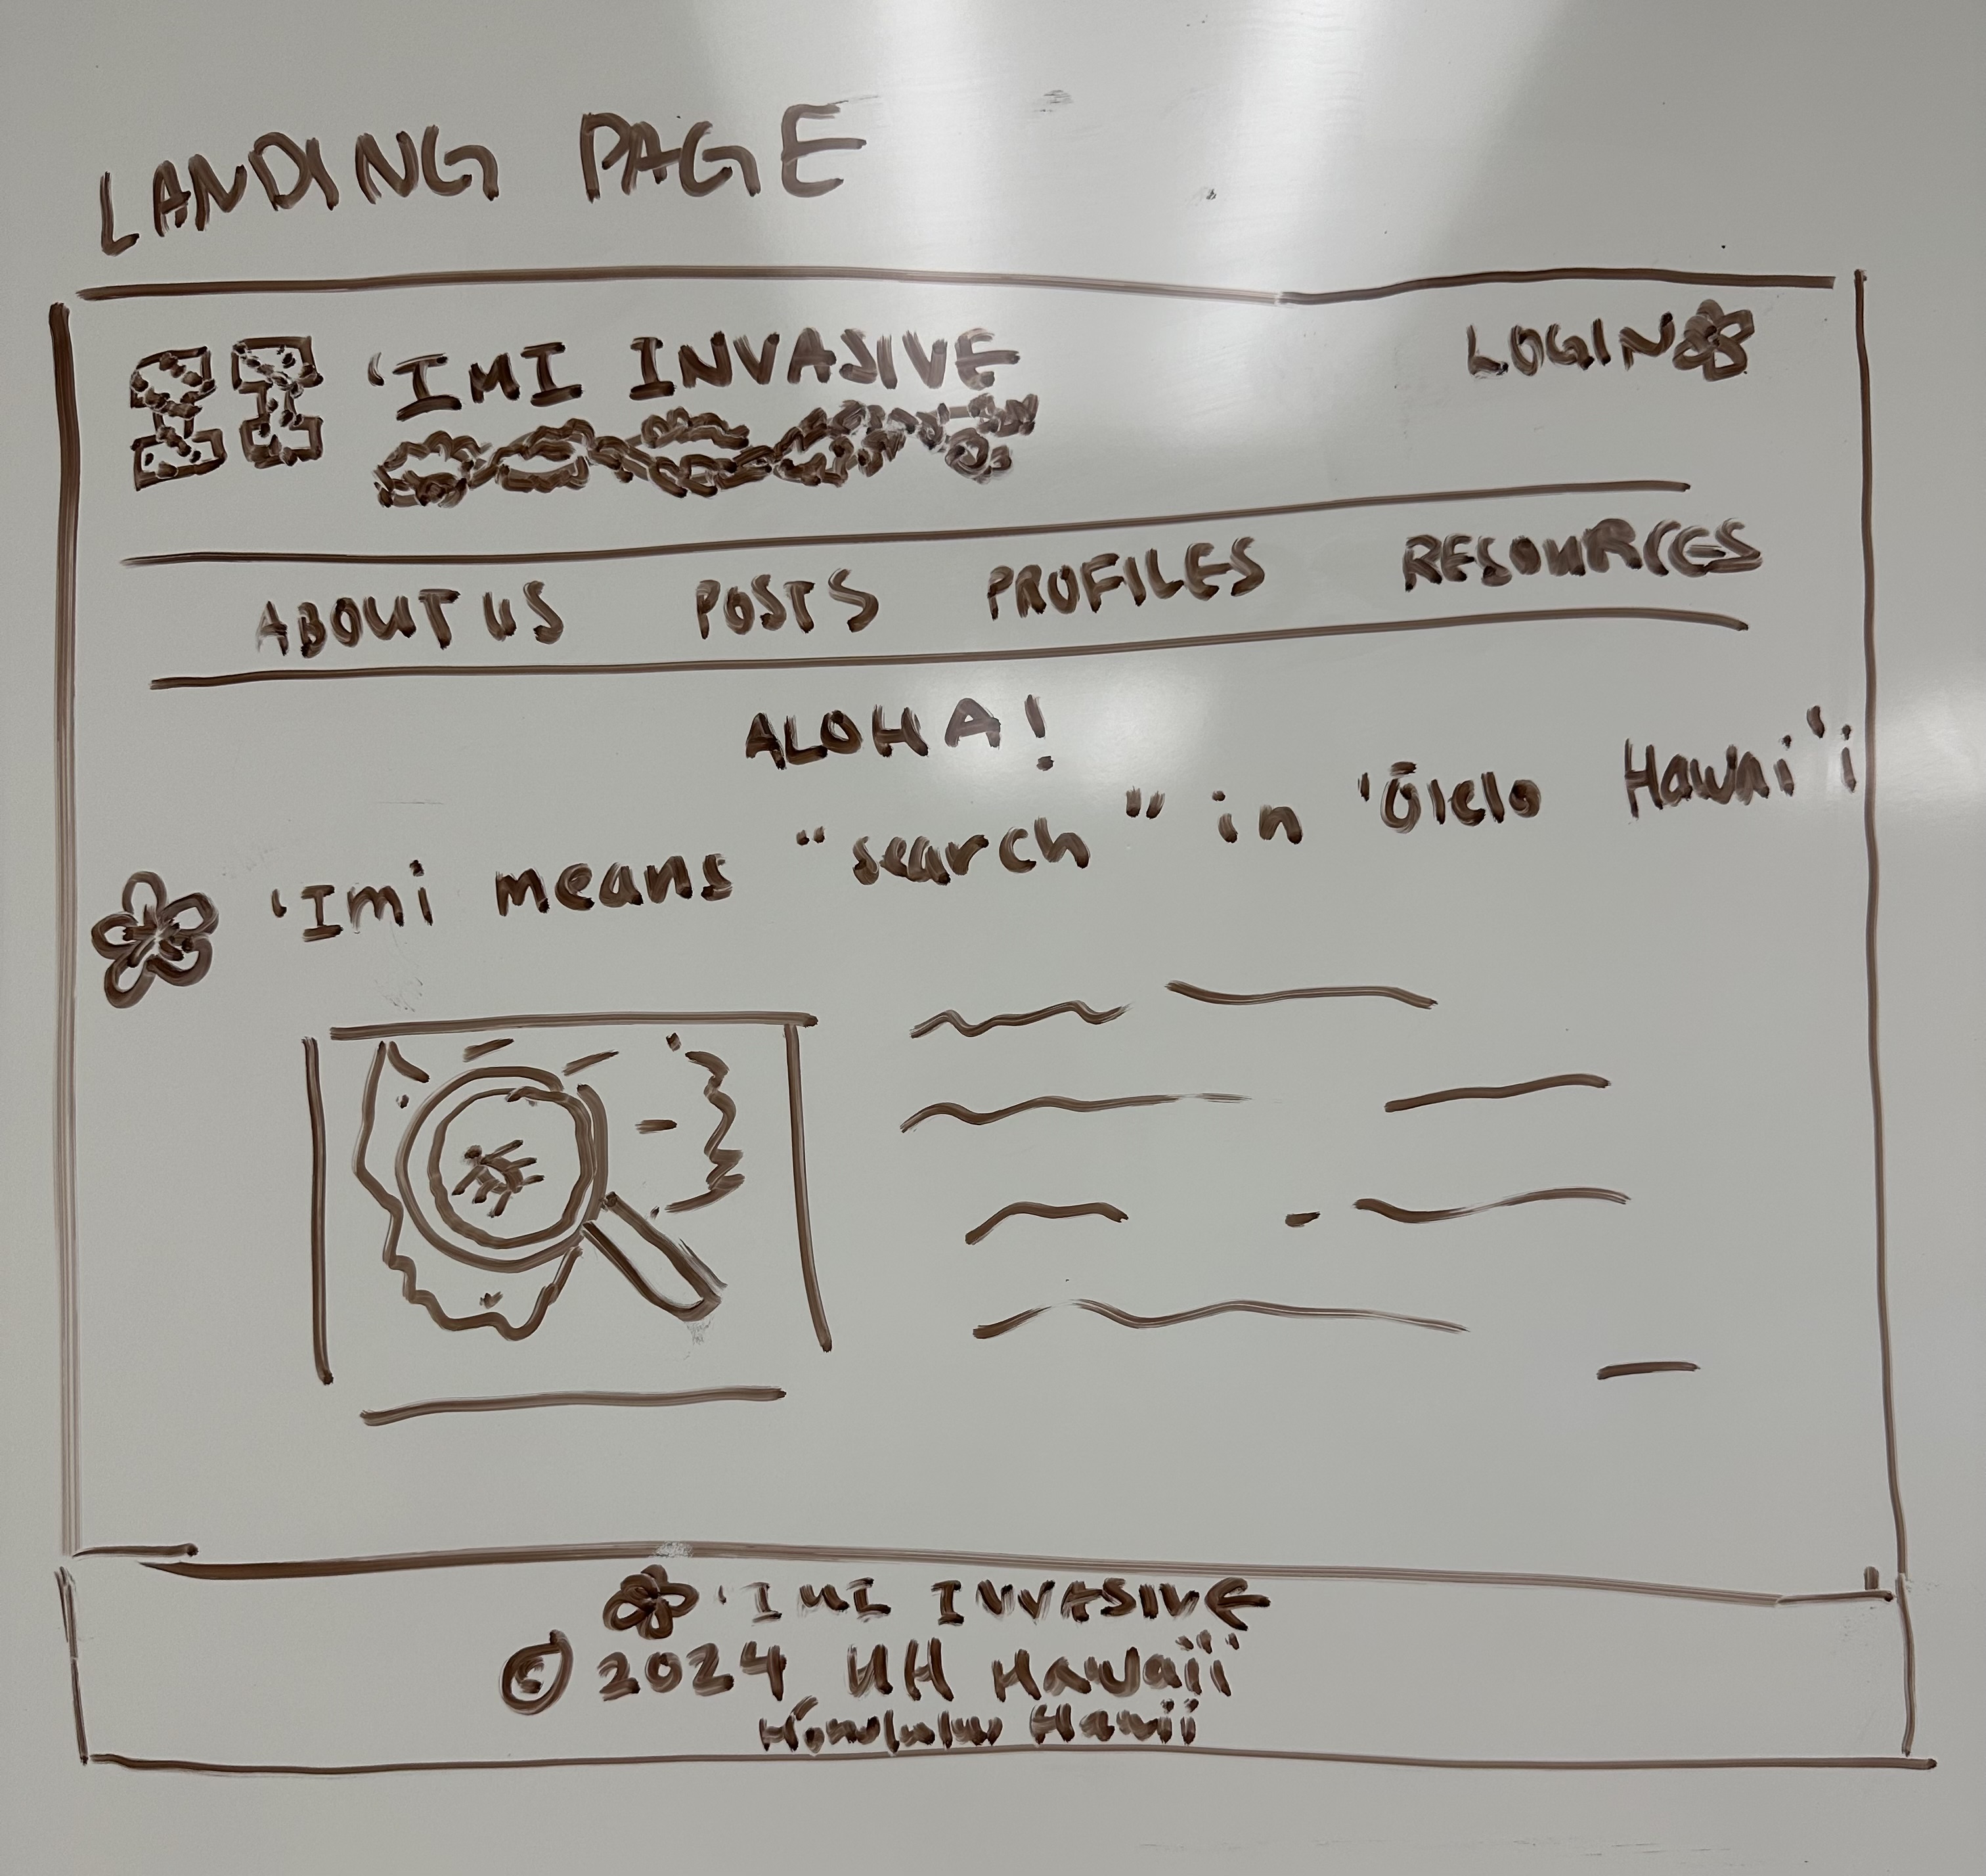 LANDING PAGE
'IMI INVASIVE
LOGIN
ABOUT US POSTS PROFILES RESOURCES
ALOHA!
'Imi means "search" in 'Ōlelo Hawai'i
'IMI INVASIVE
© 2024 UH Hawaii
Honolulu Hawii